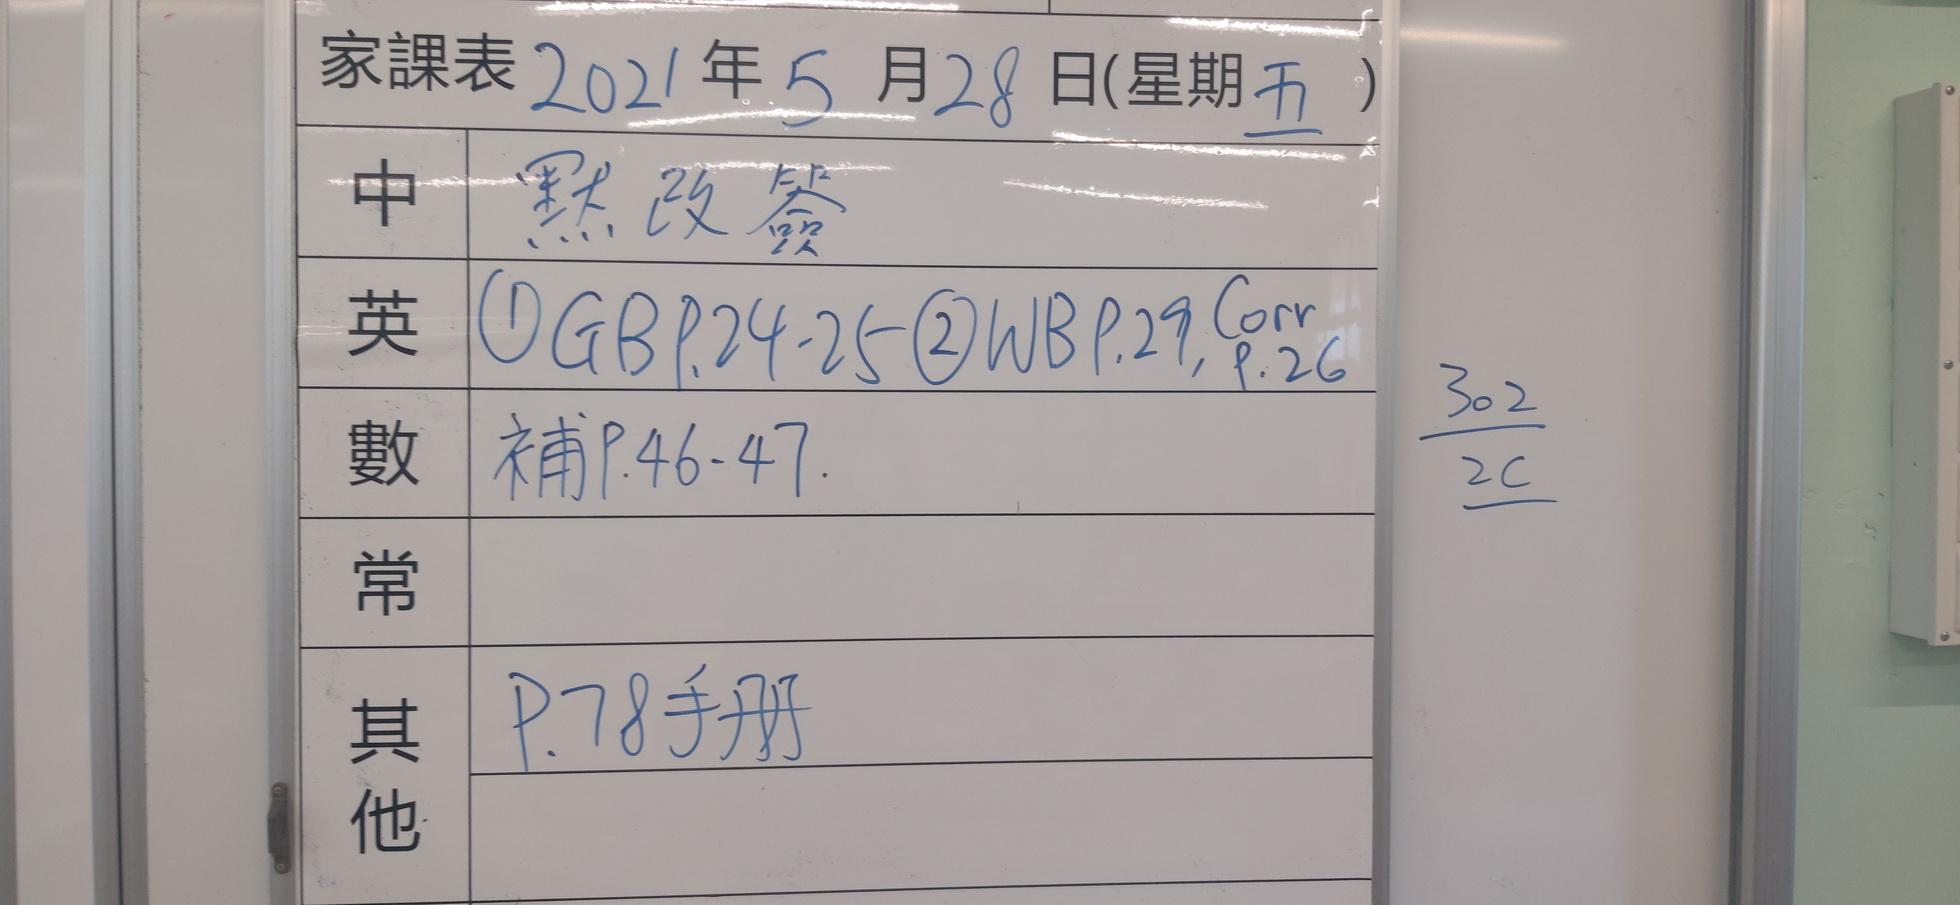 家課表 2021年 5 月 28 日(星期 五 )
中 默改簽
英 ①GB P.24-25 ②WB P.29, Corr P.26
數 補P.46-47.
常
其他 P.78手册
302
2C